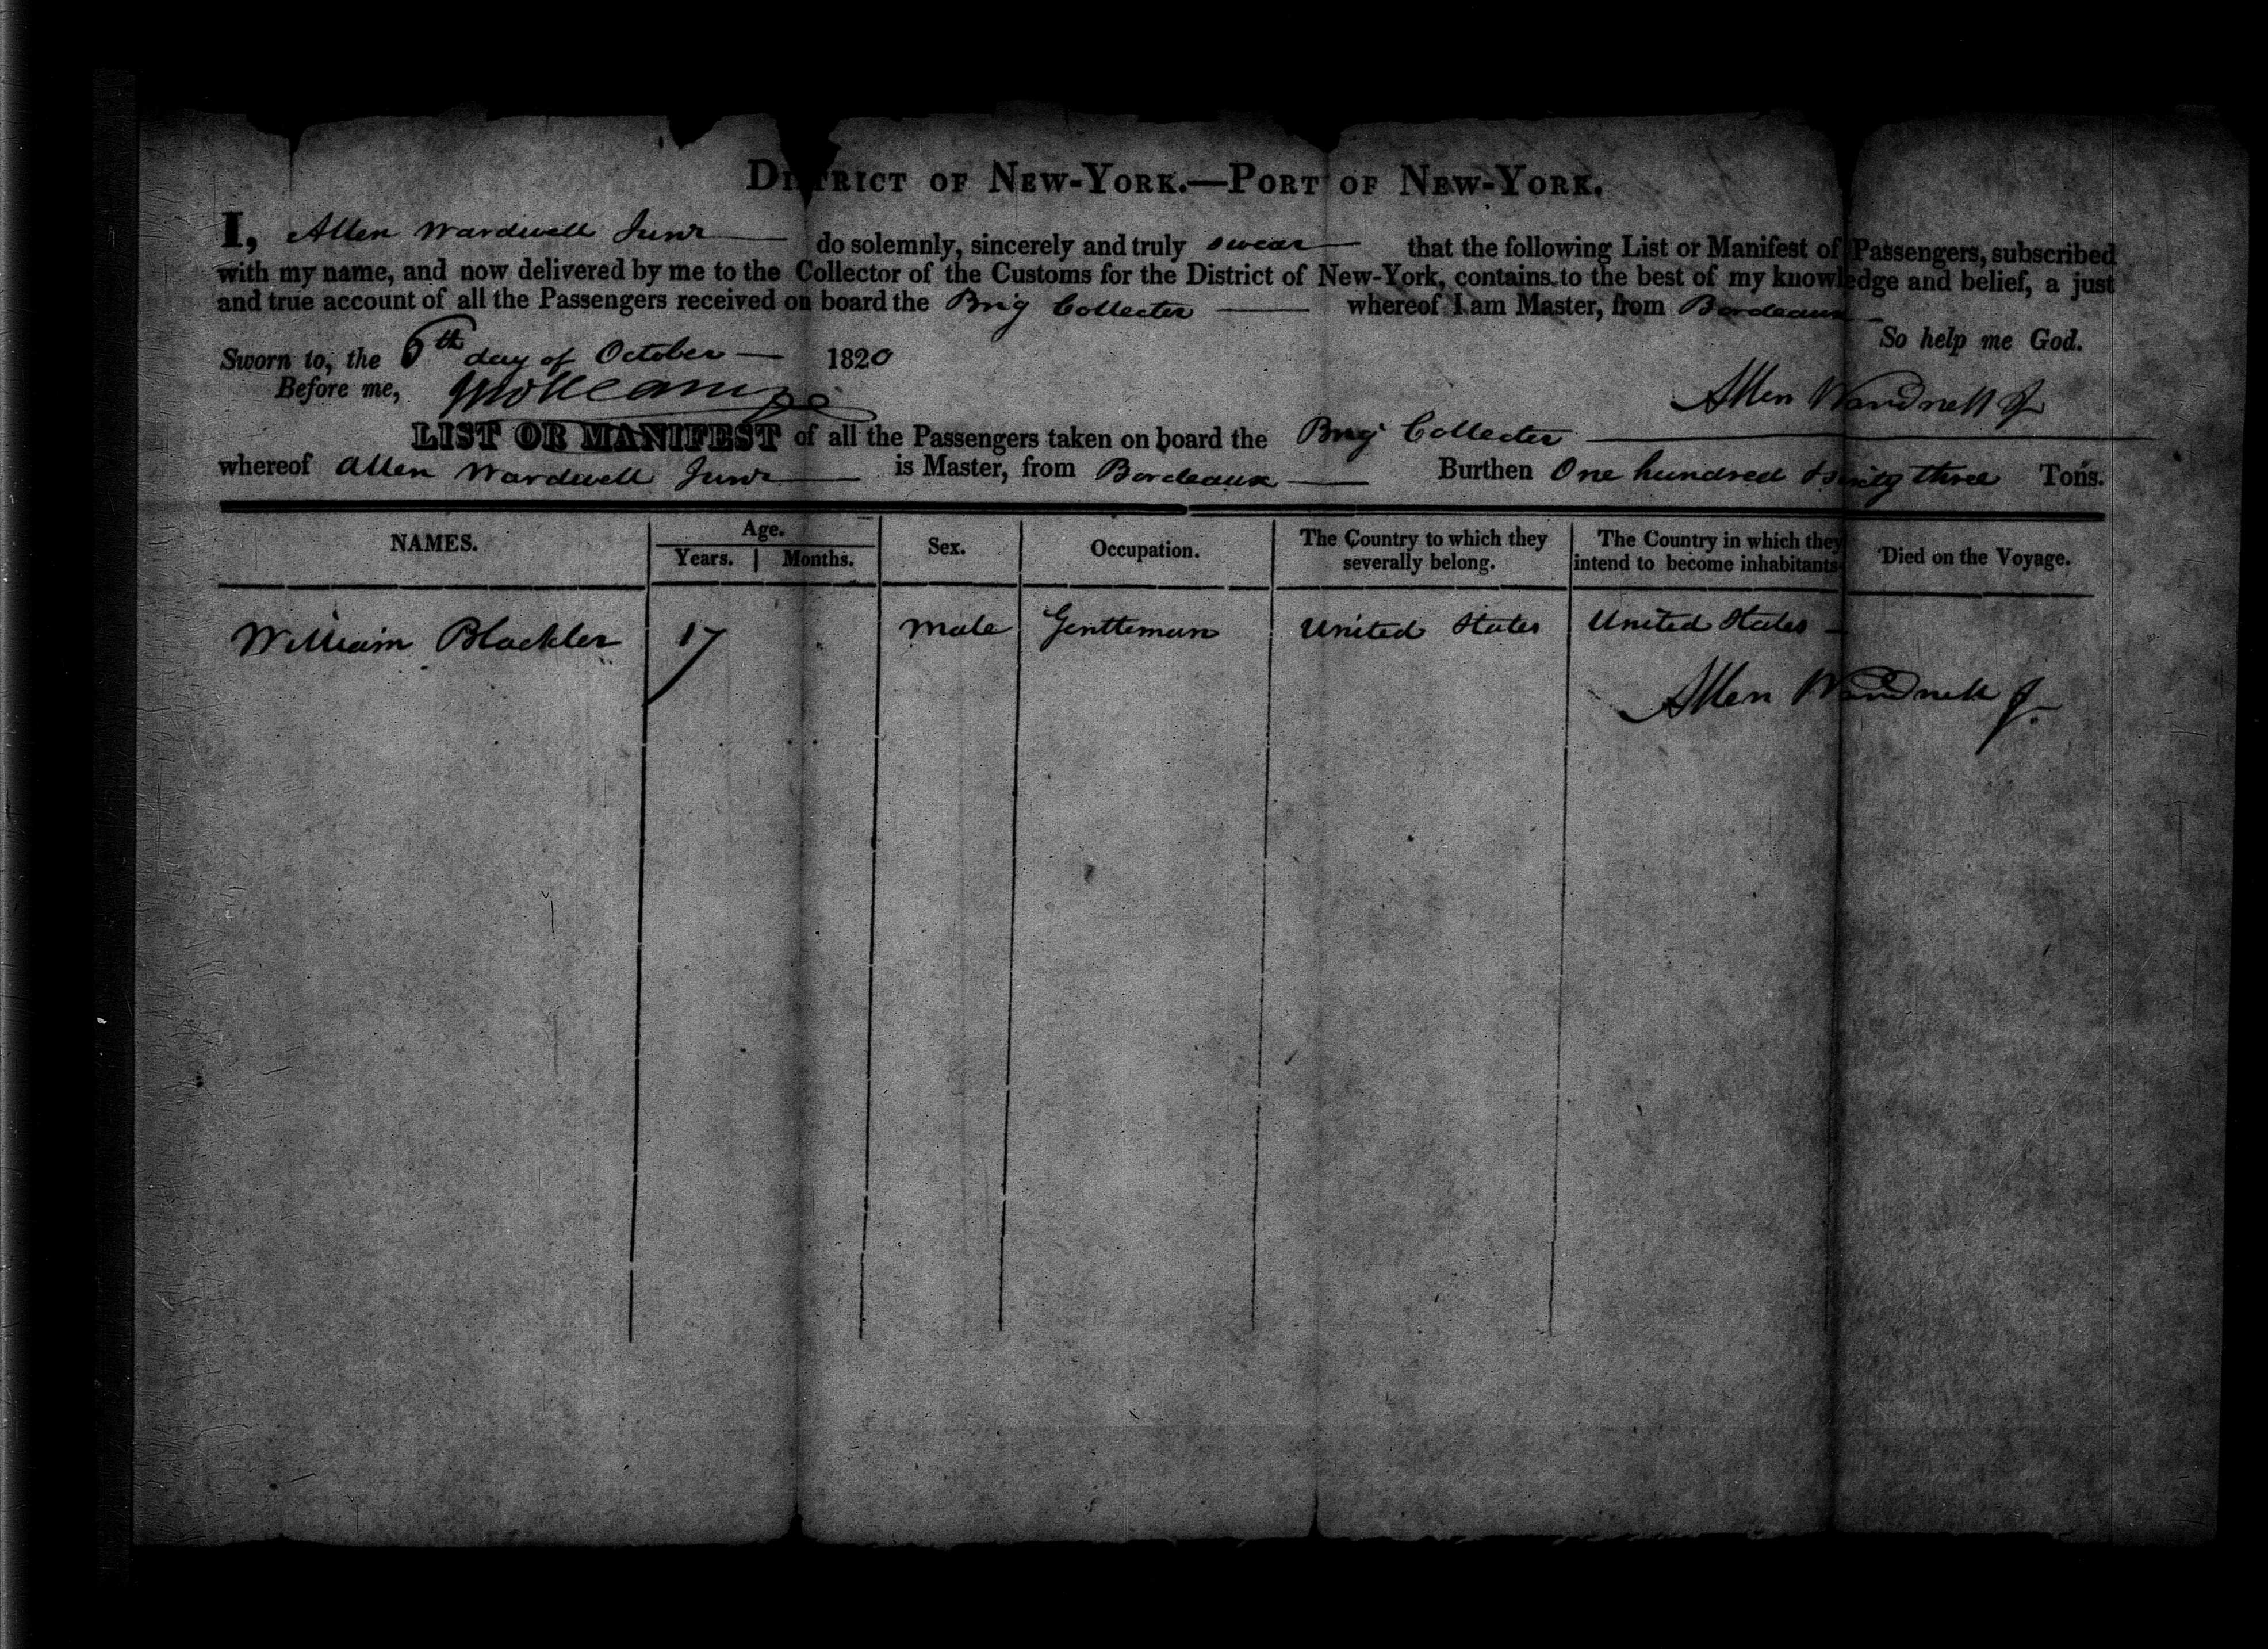 DISTRICT OF NEW-YORK.—PORT OF NEW-YORK.
I, Allen Wardwell Junr do solemnly, sincerely and truly swear that the following List or Manifest of Passengers, subscribed
with my name, and now delivered by me to the Collector of the Customs for the District of New-York, contains to the best of my knowledge and belief, a just
and true account of all the Passengers received on board the Brig Collecter whereof I am Master, from Bordeaux
So help me God.
Sworn to, the 6th day of October 1820
Before me,
Allen Wardwell Jr
LIST OR MANIFEST of all the Passengers taken on board the Brig Collecter
whereof Allen Wardwell Junr is Master, from Bordeaux Burthen One hundred three Tons.
NAMES. Age. Sex. Occupation. The Country to which they severally belong. The Country in which they intend to become inhabitants. Died on the Voyage.
Years. Months.
William Blackler 17 male Gentleman United States United States
Allen Wardwell Jr